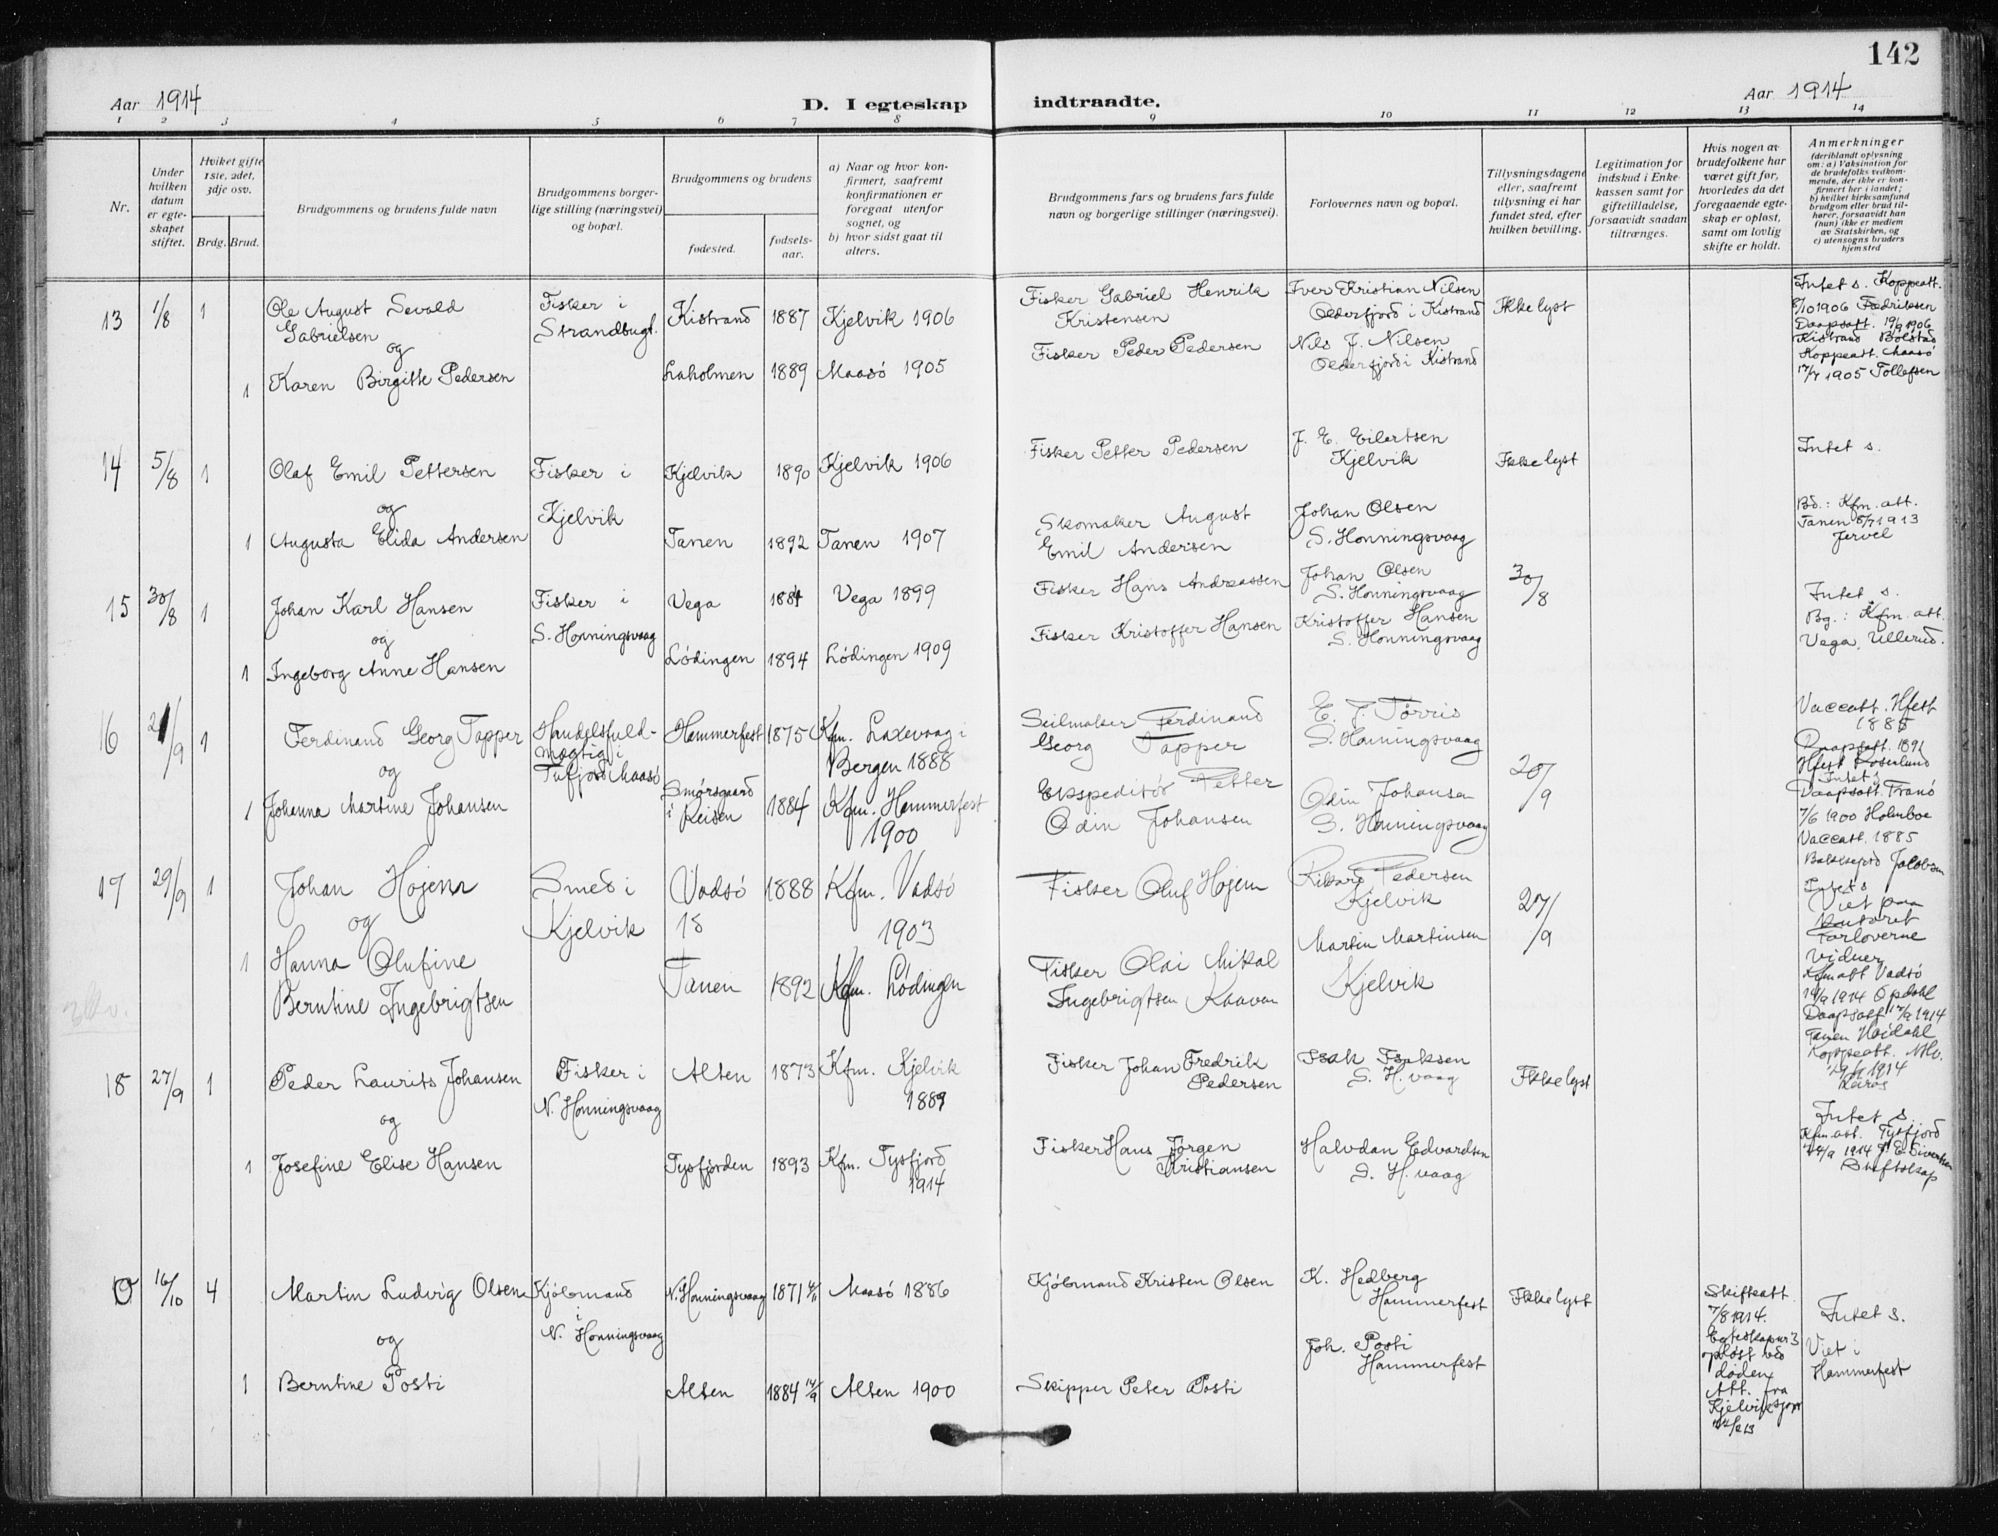 142
Aar 1914
D. I egteskap indtraadte.
Aar 1914
1 2 3 4 5 6 7 8 9 10 11 12 13 14
Nr.
Under hvilken datum er egteskapet stiftet.
Hviket gifte 1ste, 2det, 3dje osv.
Brdg. Brud.
Brudgommens og brudens fulde navn
Brudgommens borgerlige stilling (næringsvei) og bopæl.
Brudgommens og brudens
fødested.
fødselsaar.
a) Naar og hvor konfirmert, saafremt konfirmationen er foregaat utenfor sognet, og
b) hvor sidst gaat til alters.
Brudgommens fars og brudens fars fulde navn og borgerlige stillinger (næringsvei).
Forlovernes navn og bopæl.
Tillysningsdagene eller, saafremt tillysning ei har fundet sted, efter hvilken bevilling.
Legitimation for indskud i Enkekassen samt for giftetilladelse, forsaavidt saadan tiltrænges.
Hvis nogen av brudefolkene har været gift før, hvorledes da det foregaaende egteskap er opløst, samt om lovlig skifte er holdt.
Anmerkninger
(deriblandt oplysning om: a) Vaksination for de brudefolks vedkommende, der ikke er konfirmert her i landet;
b) hvilket kirkesamfund brudgom eller brud tilhører, forsaavidt han (hun) ikke er medlem av Statskirken, og
c) utensogns bruders hjemsted
13 1/8 1
Ole August Sevald
Gabrielsen
og
1 Karen Birgitte Pedersen
Fisker i
Strandbugt.
Kistrand 1887 Kjelvik 1906
Laholmen 1889 Maasö 1905
Fisker Gabriel Henrik
Kristensen
Fisker Peder Pedersen
Iver Kristian Nilsen
Olderfjord i Kistrand
Nils J. Nilsen
Olderfjord i Kistrand
Ikke lyst
Intet s. Koppeatt.
8/10 1906 Fredriksen
Daapsatt. 19/9 1906
Kistrand Bolstad
Koppeatt. Maasö
17/7 1905 Tollefsen
14 5/8 1
Olaf Emil Pettersen
og
1 Augusta Elida Andersen
Fisker i
Kjelvik
Kjelvik 1890 Kjelvik 1906
Tanen 1892 Tanen 1907
Fisker Petter Pedersen
Skomaker August
Emil Andersen
J. E. Eilertsen
Kjelvik
Johan Olsen
S. Honningsvaag
Ikke lyst
Intet s.
Bd.: Kfm. att.
Tanen 8/7 1913
Jervel
15 30/8 1
Johan Karl Hansen
og
1 Ingeborg Anne Hansen
Fisker i
S. Honningsvaag
Vega 1884 Vega 1899
Lödingen 1894 Lödingen 1909
Fisker Hans Andreassen
Fisker Kristoffer Hansen
Johan Olsen
S. Honningsvaag
Kristoffer Hansen
S. Honningsvaag
30/8
Intet s.
Bg.: Kfm. att.
Vega, Ullerud.
16 21/9 1
Ferdinand Georg Tapper
og
1 Johanna Martine Johansen
Handelsfuld-
mægtig i
Tufjord Maasö
Hammerfest 1875 Kfm. Laxevaag i
Bergen 1888
Smörsgaard
i Reisen 1884 Kfm. Hammerfest
1900
Seilmaker Ferdinand
Georg Tapper
Ekspeditör Petter
Odin Johansen
E. J. Törris
S. Honningsvaag
Odin Johansen
S. Honningsvaag
20/9
Vaccatt. Hfest
1885
Daapsatt. 1891
Hfest
Intet s
Daapsatt. Tranö
7/6 1900 Holmboe
Vaccatt. 1885
Balsfjord Jacobsen
17 29/9 1
Johan Hojem
og
1 Hanna Olufine
Berntine Ingebrigtsen
Smed i
Kjelvik
Vadsö 1888 Kfm. Vadsö
18
1903
Tanen 1892 Kfm. Lödingen
Fisker Oluf Hojem
Fisker Olai Mikal
Ingebrigtsen Kaaven
Rikard Pedersen
Kjelvik
Martin Martinsen
Kjelvik
27/9
Intet s
Viet paa
kontoret
Forloverne
vidner
Kfm att Vadsö
14/9 1914 Opdahl
Daapsatt 17/9 1914
Tanen Hoidahl
Koppeatt.
19/9 1914
18 27/9 1
Peder Laurits Johansen
og
1 Josefine Elise Hansen
Fisker i
N. Honningsvaag
Alten 1873 Kfm. Kjelvik
1889
Tysfjorden 1893 Kfm. Tysfjord
1914
Fisker Johan Fredrik
Pedersen
Fisker Hans Jörgen
Kristiansen
Isak Isaksen
S. H.vaag
Halvdan Edvardsen
S. H.vaag
Ikke lyst
Intet s.
Kfm att. Tysfjord
24/9 1914 J. E. Sivertsen
O 16/10 4
Martin Ludvig Olsen
og
1 Berntine Posti
Kjöbmand
i
N. Honningsvaag
N. Honningsvaag 1871 Maasö 1886
Alten 1884 14/9 Alten 1900
Kjöbmand Kristen Olsen
Skipper Peter Posti
K. Hedberg
Hammerfest
Joh. Posti
Hammerfest
Ikke lyst
Skifteatt.
7/8 1914.
Egteskap nr 3
oplöst ved
döden
Att. fra
Kjelvik
Intet s.
Viet i
Hammerfest